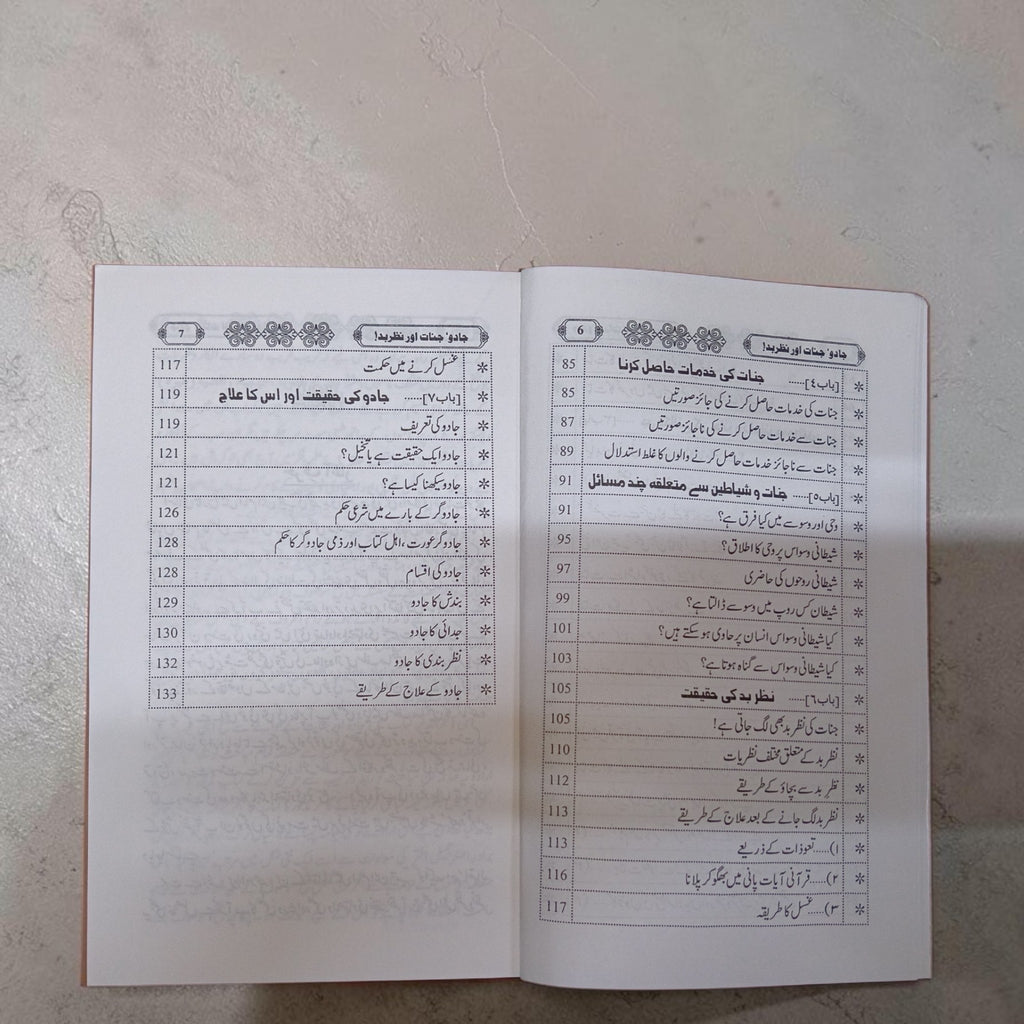 جادو' جنات اور نظربد! 6
* [باب ٤]...... جنات کی خدمات حاصل کرنا 85
* جنات کی خدمات حاصل کرنے کی جائز صورتیں 85
* جنات سے خدمات حاصل کرنے کی ناجائز صورتیں 87
* جنات سے ناجائز خدمات حاصل کرنے والوں کا غلط استدلال 89
* [باب ٥]...... جنات و شیاطین سے متعلقہ چند مسائل 91
* وحی اور وسوسے میں کیا فرق ہے؟ 91
* شیطانی وسواس پر وحی کا اطلاق؟ 95
* شیطانی روحوں کی حاضری 97
* شیطان کس روپ میں وسوسے ڈالتا ہے؟ 99
* کیا شیطانی وسواس انسان پر حاوی ہو سکتے ہیں؟ 101
* کیا شیطانی وسواس سے گناہ ہوتا ہے؟ 103
* [باب ٦]...... نظر بد کی حقیقت 105
* جنات کی نظر بد بھی لگ جاتی ہے! 105
* نظر بد کے متعلق مختلف نظریات 110
* نظر بد سے بچاؤ کے طریقے 112
* نظر بد لگ جانے کے بعد علاج کے طریقے 113
* ۱)......تعوذات کے ذریعے 113
* ۲)......قرآنی آیات پانی میں بھگو کر پلانا 116
* ۳)......غسل کا طریقہ 117
جادو' جنات اور نظربد! 7
* غسل کرنے میں حکمت 117
* [باب ٧]...... جادو کی حقیقت اور اس کا علاج 119
* جادو کی تعریف 119
* جادو ایک حقیقت ہے یا تخیل؟ 121
* جادو سیکھنا کیسا ہے؟ 121
* جادوگر کے بارے میں شرعی حکم 126
* جادوگر عورت، اہل کتاب اور ذمی جادوگر کا حکم 128
* جادو کی اقسام 128
* بندش کا جادو 129
* جدائی کا جادو 130
* نظر بندی کا جادو 132
* جادو کے علاج کے طریقے 133